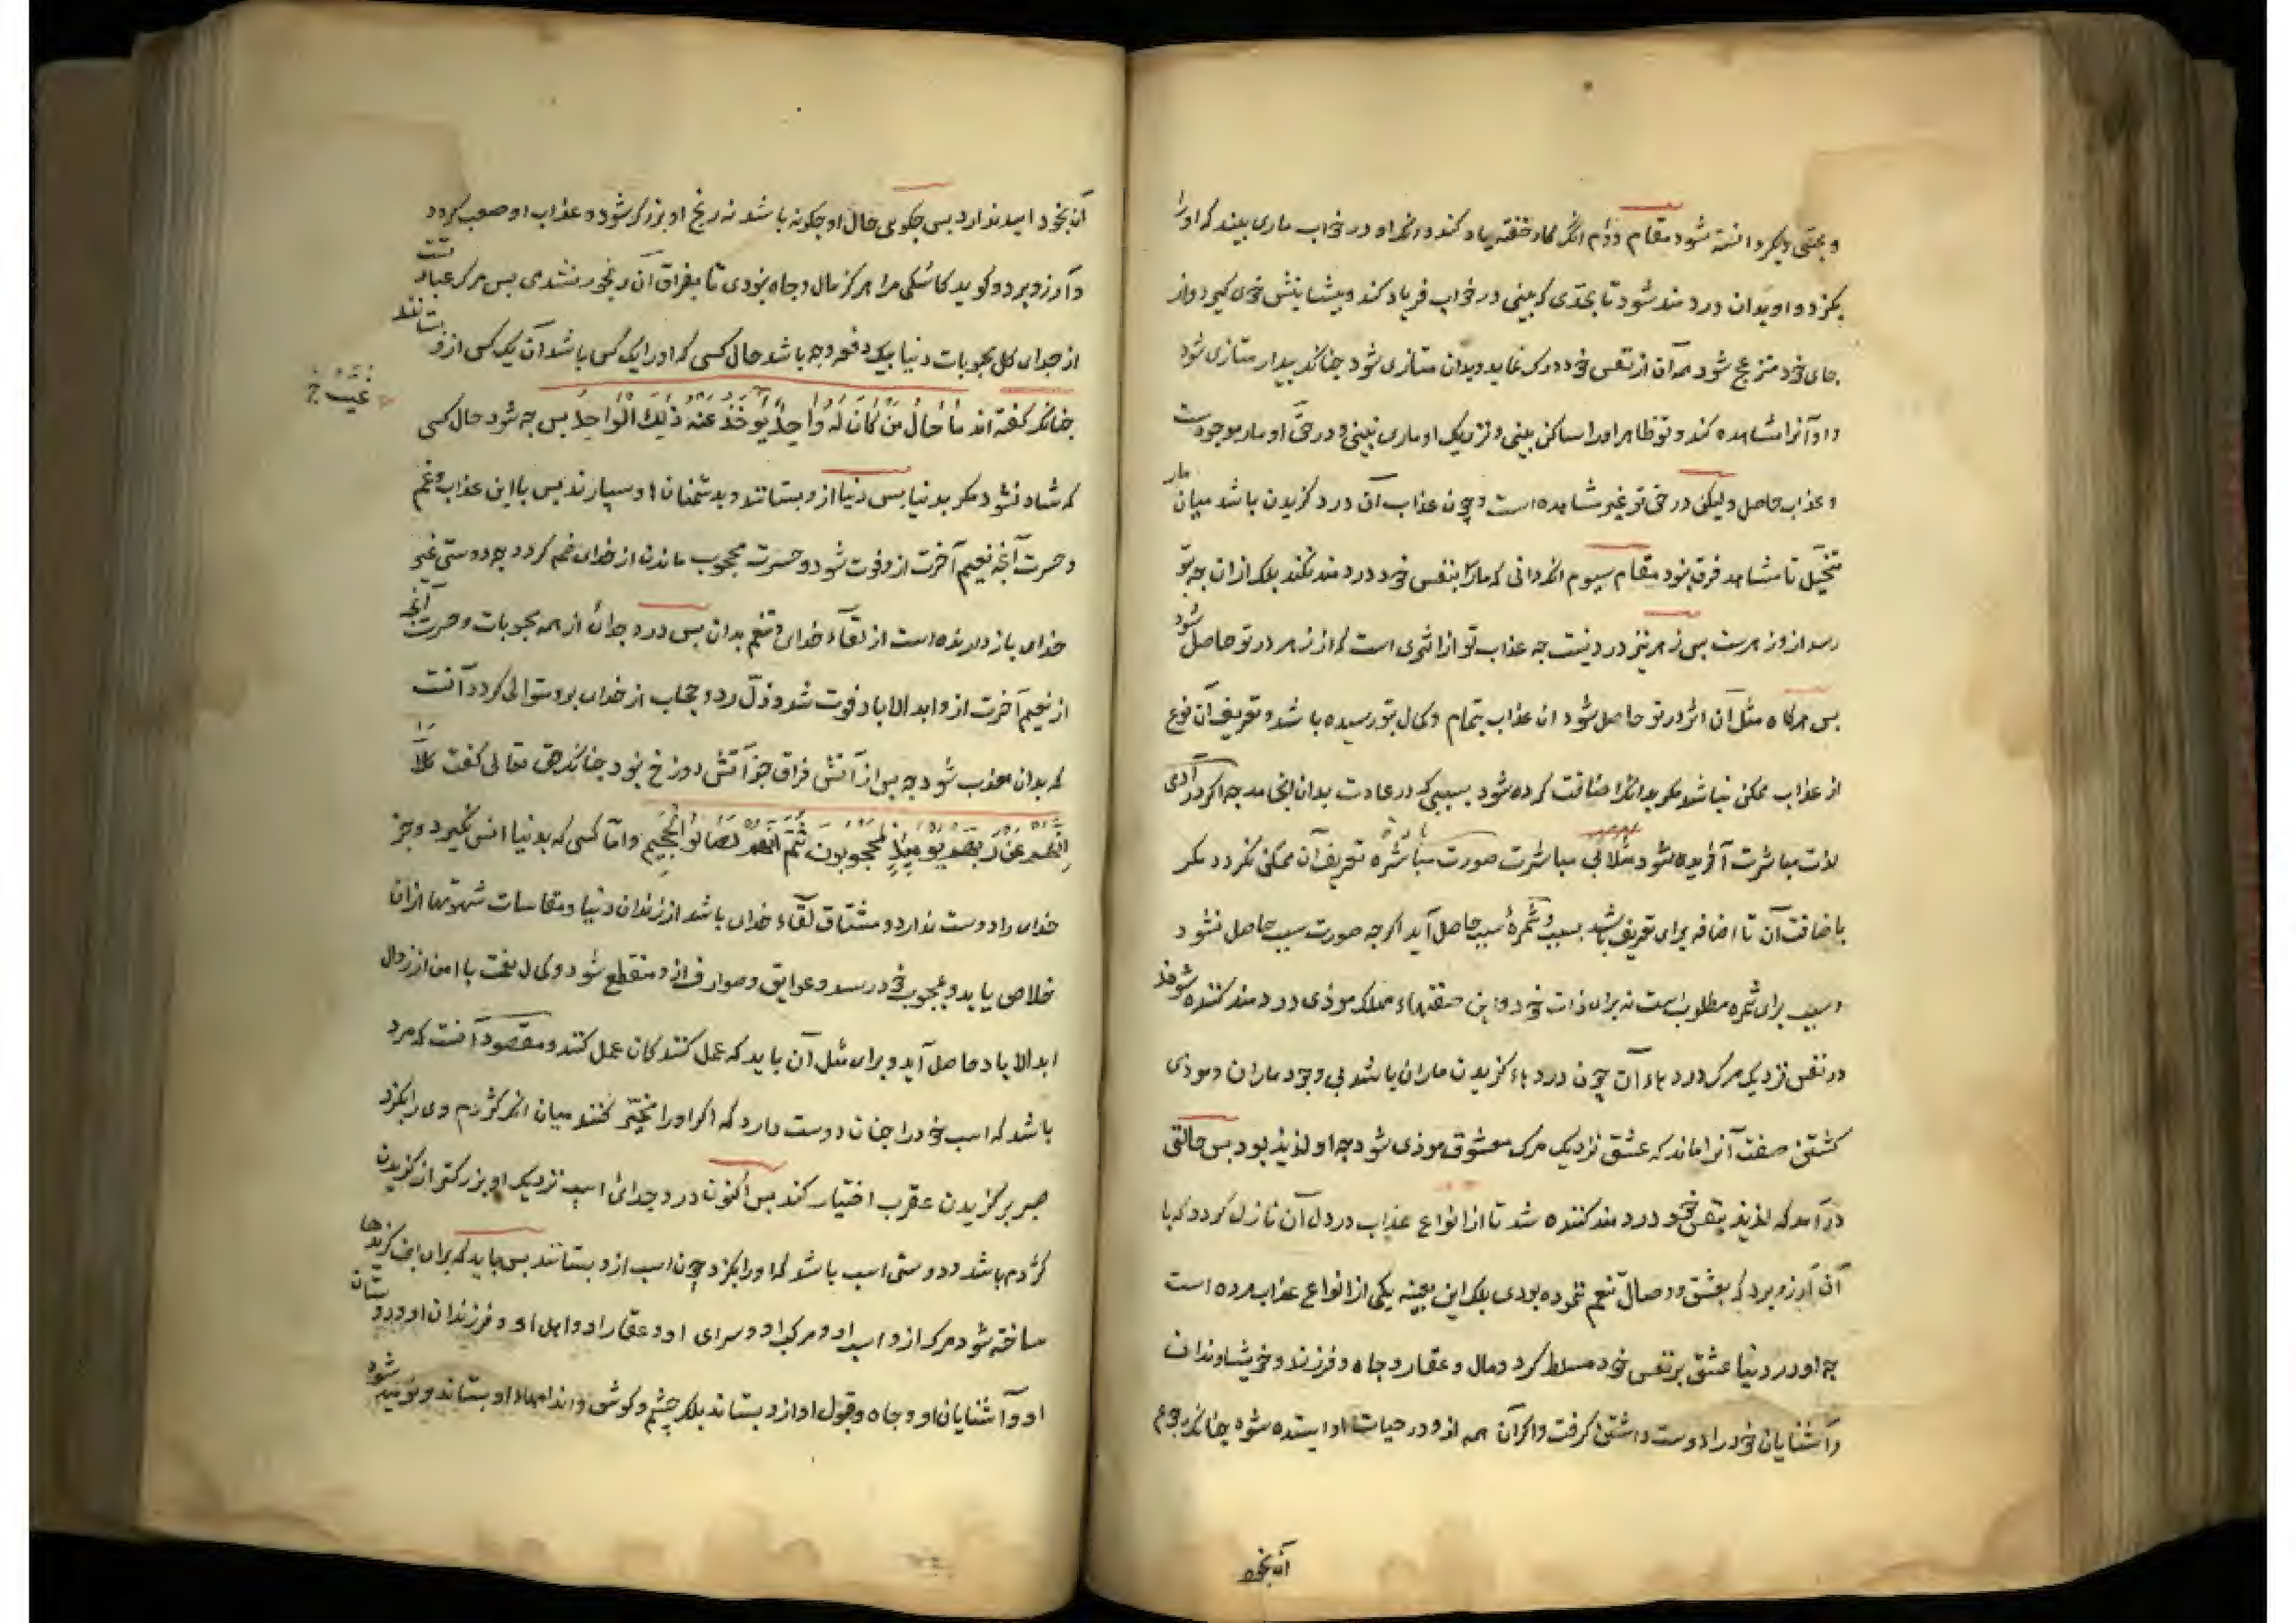 و بچشمی دیگر دانسته شود مقام دوم انکه کار خفته یاد کند و انکه او در خواب ماری بیند که اورا
بکزد و او بدان دردمند شود تا بحدّی که بینی در خواب فریاد کند و پیشانیش خوی کیرد و از
جای خود منزعج شود همه آن از نفس خود درک نماید و بدان متاذی شود چنانکه بیدار متاذی شود
و او آنرا مشاهده کند و تو ظاهر اورا ساکن بینی و نزدیک او ماری نبینی و در حق او مار موجودست
و عذاب حاصل و لیکن در حق تو غیر مشاهده است و چون عذاب آن درد کزیدن باشد میان مار
متخیّل تا مشاهد فرق نبود مقام سیوم انکه دانی که مار بنفس خود دردمند نکند بلکه ازان چه بتو
رسد ازو زهرست پس زهر نیز درد نیست چه عذاب تو از اثری است که از زهر در تو حاصل شود
پس هرکاه مثل آن اثر در تو حاصل شود ان عذاب بتمام و کمال بتو رسیده باشد و تعریف آن نوع
از عذاب ممکن نباشد مکر بدانکه اضافت کرده شود بسببی که در عادت بدان انجامد چه اکر در آدمی
لذت مباشرت آفریده شود مثلا بی مباشرت صورت مباشره تعریف آن ممکن نکردد مکر
باضافت آن تا اضافه برای تعریف باشد بسبب و ثمرهٔ سبب حاصل آید اکرچه صورت سبب حاصل نشود
و سبب برای ثمره مطلوب است نه برای ذات خود و این صفتهاء مهلک موذی و دردمند کننده شوند
در نفس نزدیک مرک و دردهاء آن چون دردهاء کزیدن ماران باشد بی وجود ماران و موذی
کشتن صفت آنرا ماند که عشق نزدیک مرک معشوق موذی شود چه او لذیذ بود پس حالتی
درآمد که لذیذ بنفس خود دردمند کننده شد تا از انواع عذاب در دل آن نازل کردد که با
آن آرزو برد که بعشق و وصال تنعم ننموده بودی بلکه این بعینه یکی از انواع عذاب مرده است
چه او در دنیا عشق بر نفس خود مسلط کرد و مال و عقار و جاه و فرزند و خویشاوندان
و آشنایان خود را دوست داشتن کرفت و اکر آن همه ازو در حیات او استده شود چنانکه رجوع
آن بخود
آن بخود امید ندارد پس چکویی حال او چکونه باشد نه رنج او بزرکتر شود و عذاب او صعب کردد
و آرزو برد و کوید کاشکی مرا هرکز مال و جاه نبودی تا بفراق آن رنجور نشدمی پس مرک عبارتست
از جدایی کل محبوبات دنیا بیک دفعه و چه باشد حال کسی که اورا یک کس باشد آن یک کس ازو ستانند
چنانکه کفته اند مَا حَالُ مَنْ كَانَ لَهُ وَاحِدٌ یُؤخَذُ عنه ذٰلِكَ الْوَاحِدُ پس چه شود حال کسی
که شاد نشود مکر بدنیا پس دنیا ازو بستانند و بدشمنان او سپارند پس با این عذاب و غم
و حسرت آنچه نعیم آخرت ازو فوت شود و حسرت محجوب ماندن از خدای ضم کردد چه دوستی غیر
خدای بازدارنده است از لقاء خدای و تنعم بدان پس درد جدائی از همه محبوبات و حسرت آنچه
از نعیم آخرت ازو ابد الاباد فوت شد و ذلّ ردّ و حجاب از خدای برو متوالی کردد آنست
که بدان معذب شود چه پس از آتش فراق جز آتش دوزخ نبود چنانکه حق تعالی کفت كَلَّا
إِنَّهُمْ عَنْ رَبِّهِمْ يَوْمَئِذٍ لَمَحْجُوبُونَ ثُمَّ إِنَّهُمْ لَصَالُوا الْجَحِيمِ و امّا کسی که بدنیا انس نکیرد و جز
خدای را دوست ندارد و مشتاق لقاء خدای باشد از زندان دنیا و مقاسات شهوتها ازان
خلاص یابد و بمحبوب خود رسد و عوایق و صوارف ازو منقطع شود و کمال نعمت با امن از زوال
ابد الاباد حاصل آید و برای مثل آن باید که عمل کنندکان عمل کنند و مقصود آنست که مرد
باشد که اسب خود را چنان دوست دارد که اکر اورا مخیّر کنند میان انکه کژدم وی را بکزد
صبر بر کزیدن عقرب اختیار کند پس اکنون درد جدائی اسب نزدیک او بزرکتر از کزیدن
کژدم باشد و دوستی اسب باشد که اورا بکزد چون اسب ازو بستانند پس باید که برای این کزیدنها
ساخته شود مرک ازو اسب او و مرکب او و سرای او و عقار او و اهل او و فرزندان او و دوستان
او و آشنایان او و جاه و قبول او ازو بستاند بلکه چشم و کوش و اندامهاء او بستاند و نومید شود